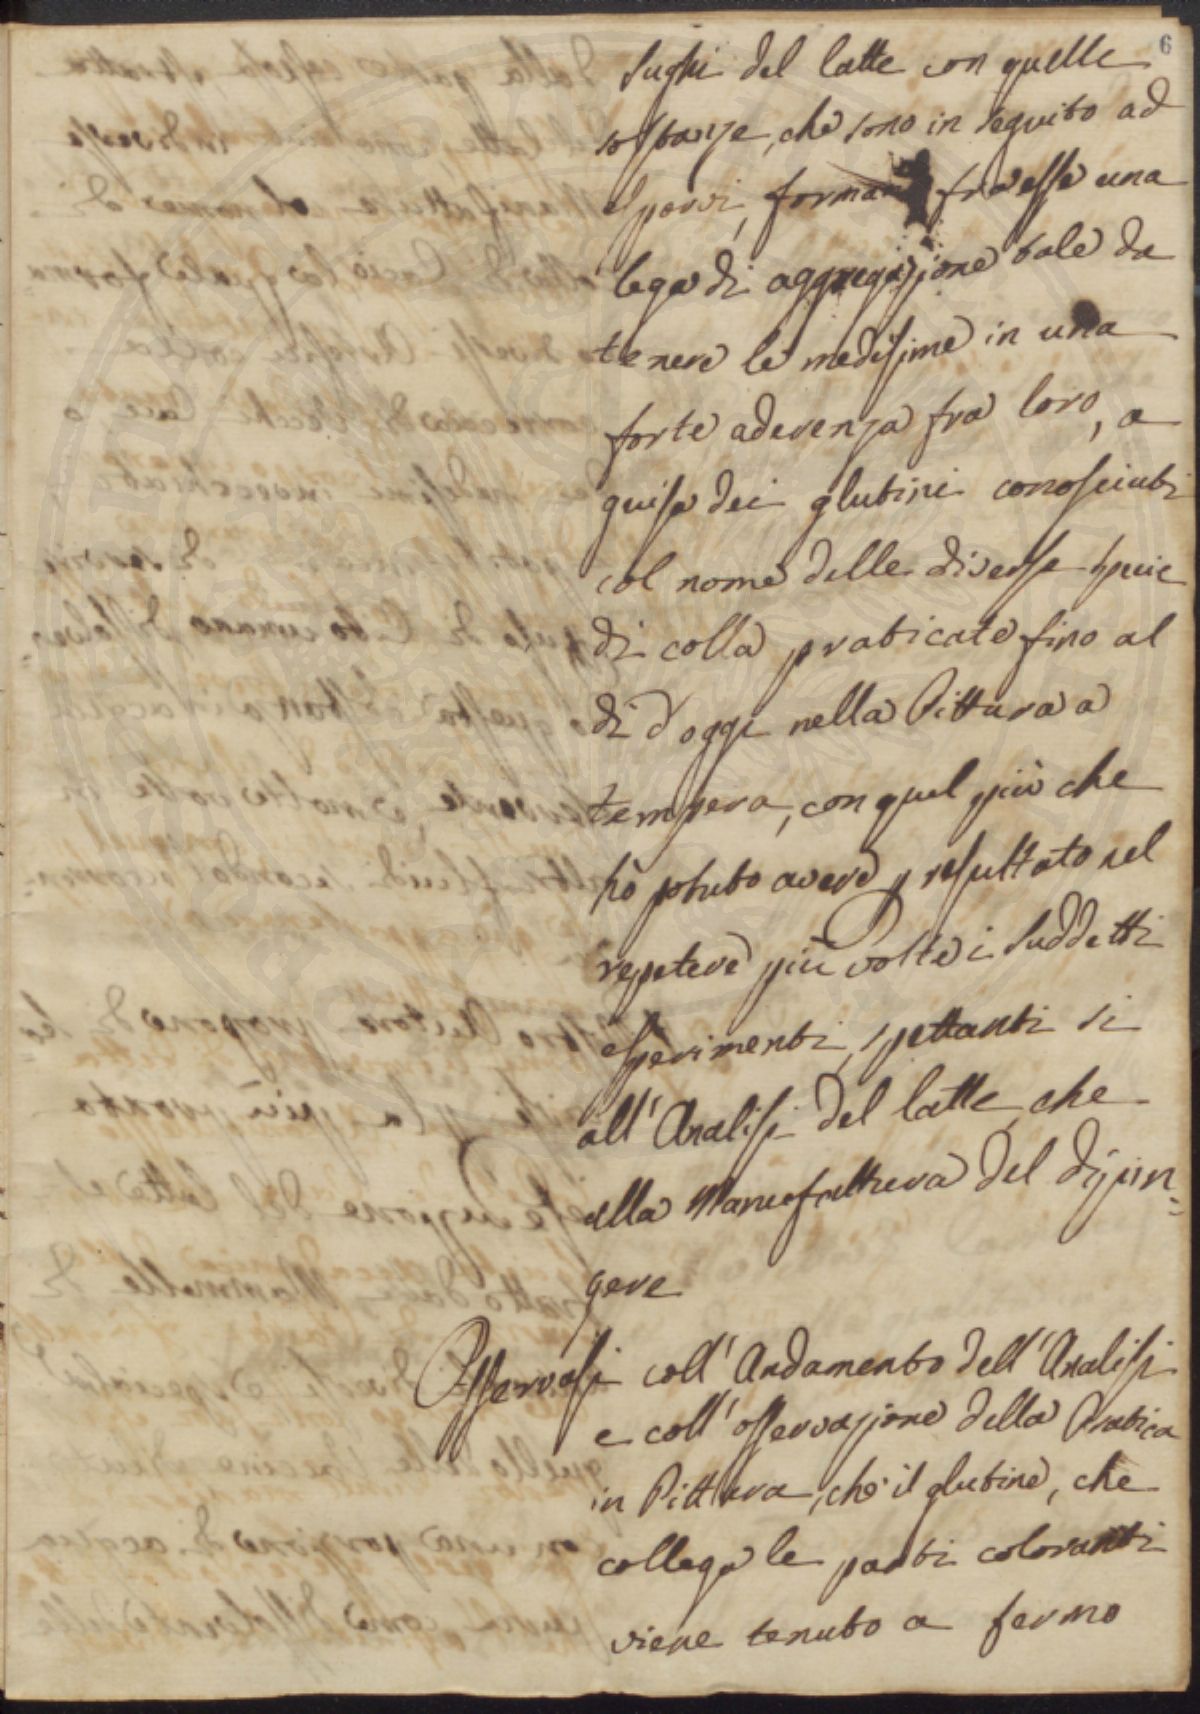 6
sughi del latte con quelle
sostanze, che sono in seguito ad
esporsi, formano fra esse una
lega di aggregazione tale da
tenere le medesime in una
forte aderenza fra loro, a
guisa dei glutini conosciuti
col nome delle diverse specie
di colla praticate fino al
dì d'oggi nella Pittura a
tempera, con quel più che
hò potuto avere p resultato nel
repetere più volte i suddetti
esperimenti, spettanti si
all' Analisi del latte, che
alla Manufattura del dipin=
gere
Osservasi coll' Andamento dell' Analisi
e coll' osservazione della Pratica
in Pittura, che il glutine, che
collega le parti coloranti
viene tenuto a fermo